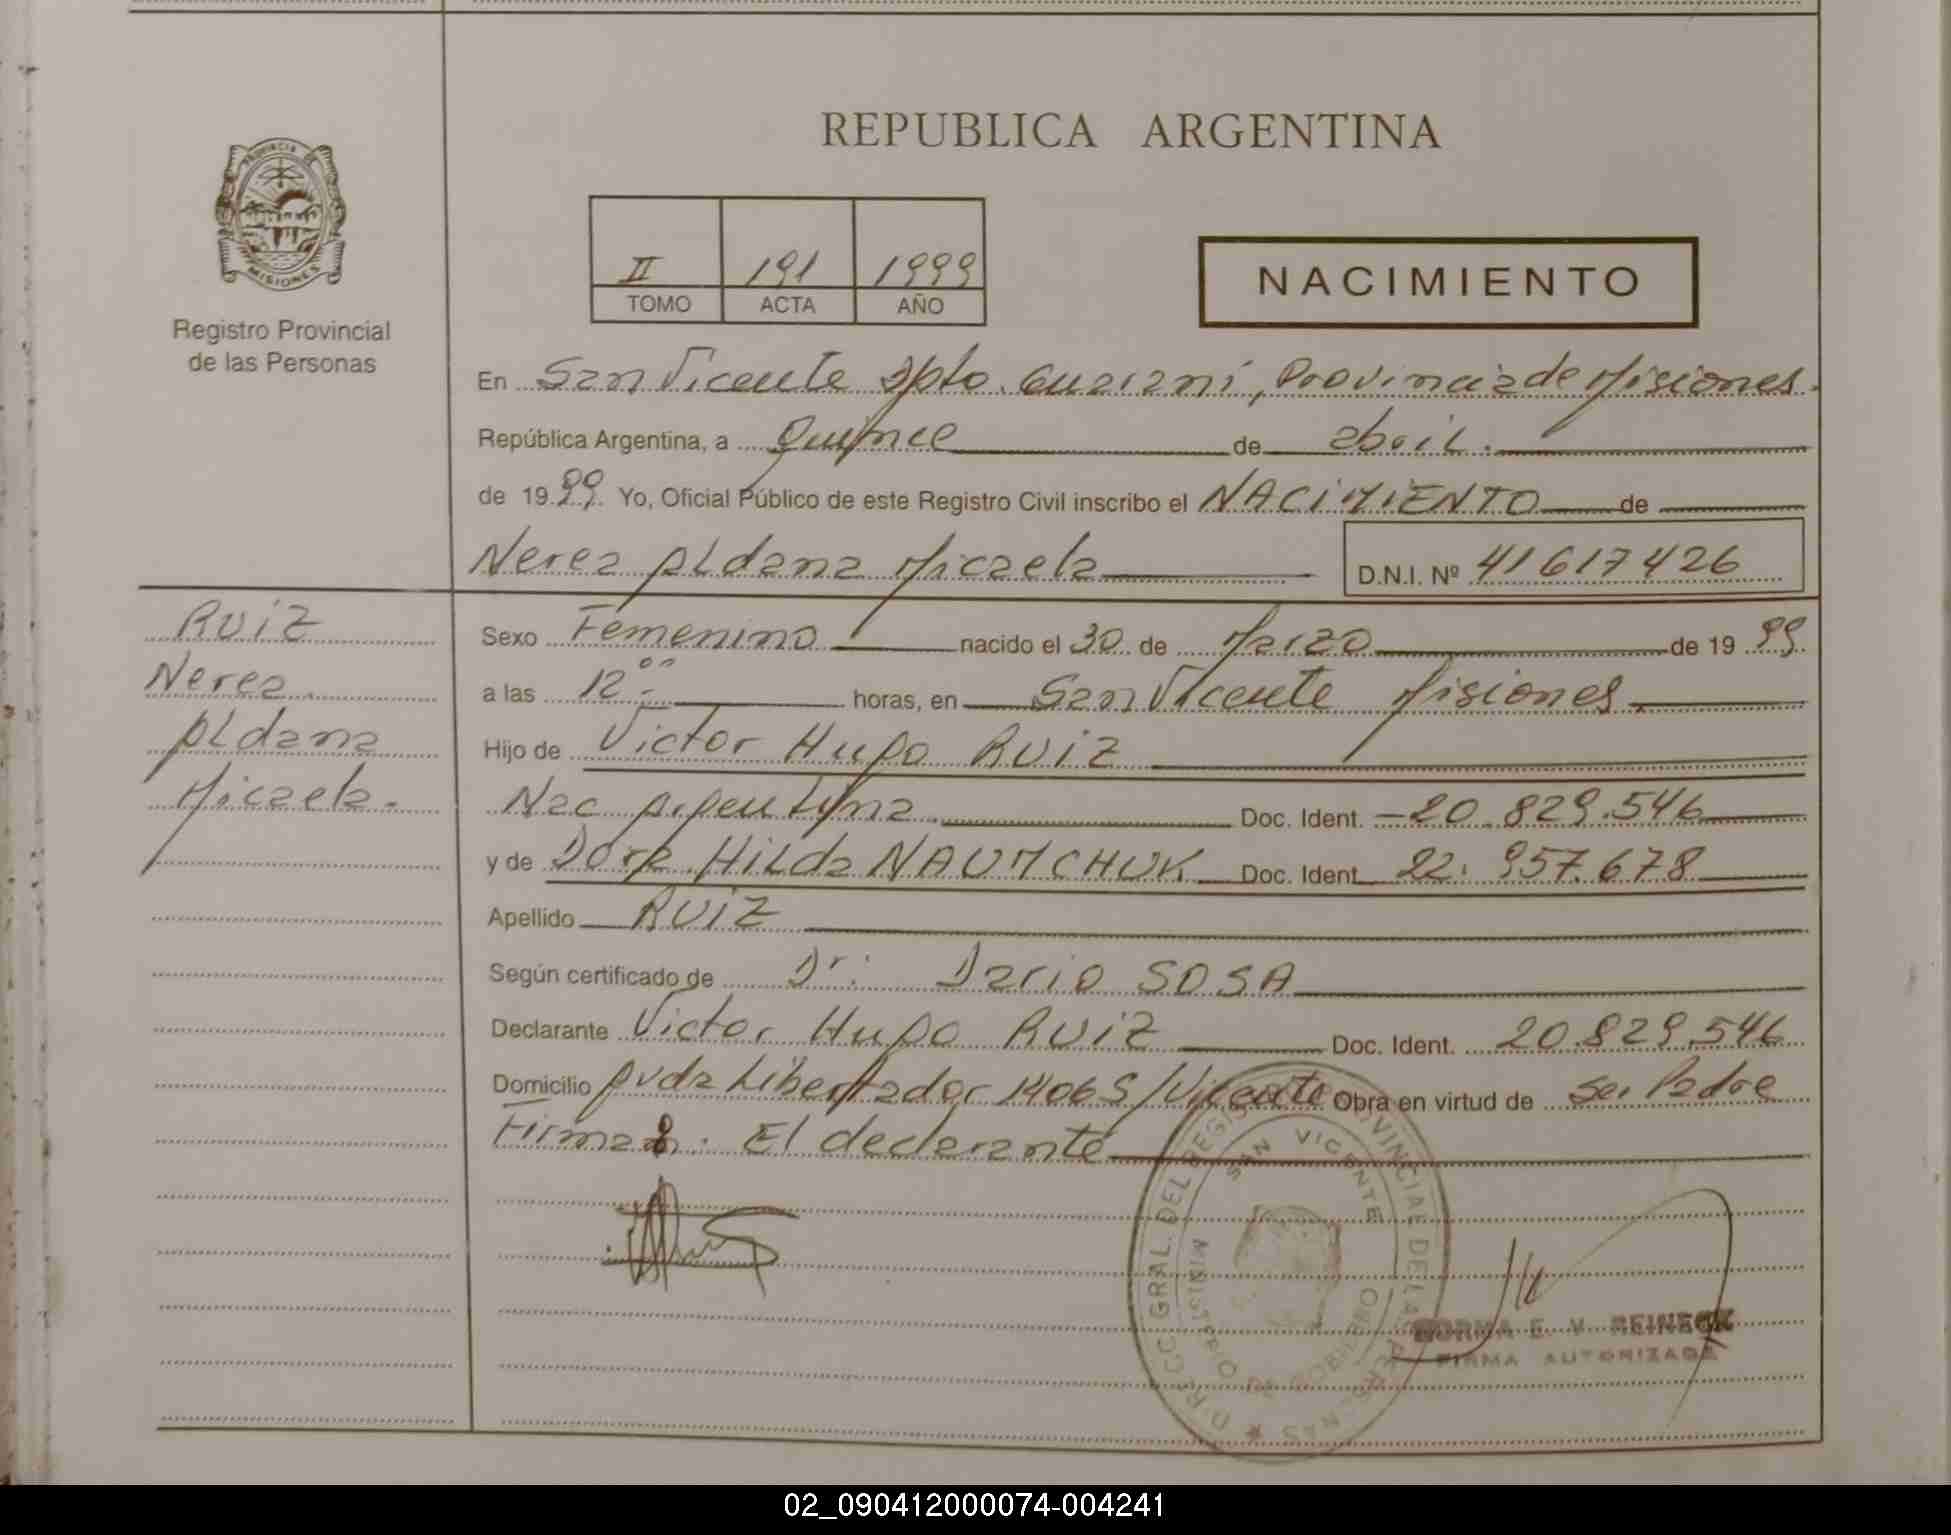 REPUBLICA ARGENTINA
PROVINCIA DE
MISIONES
Registro Provincial
de las Personas
II 191 1999
TOMO ACTA AÑO
NACIMIENTO
En San Vicente Dpto. Guaraní, Provincia de Misiones.
República Argentina, a Quince de abril.
de 1999. Yo, Oficial Público de este Registro Civil inscribo el NACIMIENTO de
Nerea Aldana Micaela D.N.I. Nº 41617426
Ruiz
Nerea
Aldana
Micaela.
Sexo Femenino nacido el 30 de Marzo de 1999.
a las 12°° horas, en San Vicente Misiones.
Hijo de Victor Hugo Ruiz
Nac Argentina. Doc. Ident. 20.829.546
y de Dora Hilda NAUMCHUK Doc. Ident. 22.957.678
Apellido Ruiz
Según certificado de Dr: Dario SOSA
Declarante Victor Hugo Ruiz Doc. Ident. 20.829.546
Domicilio Avda Libertador 1406 S/Vicente Obra en virtud de ser Padre
Firma: El declarante
DIRECC. GRAL. DEL REGISTRO PROVINCIAL DE LAS PERSONAS
SAN VICENTE
MINISTERIO DE GOBIERNO
NORMA E. V. REINECK
FIRMA AUTORIZADA
02_090412000074-004241